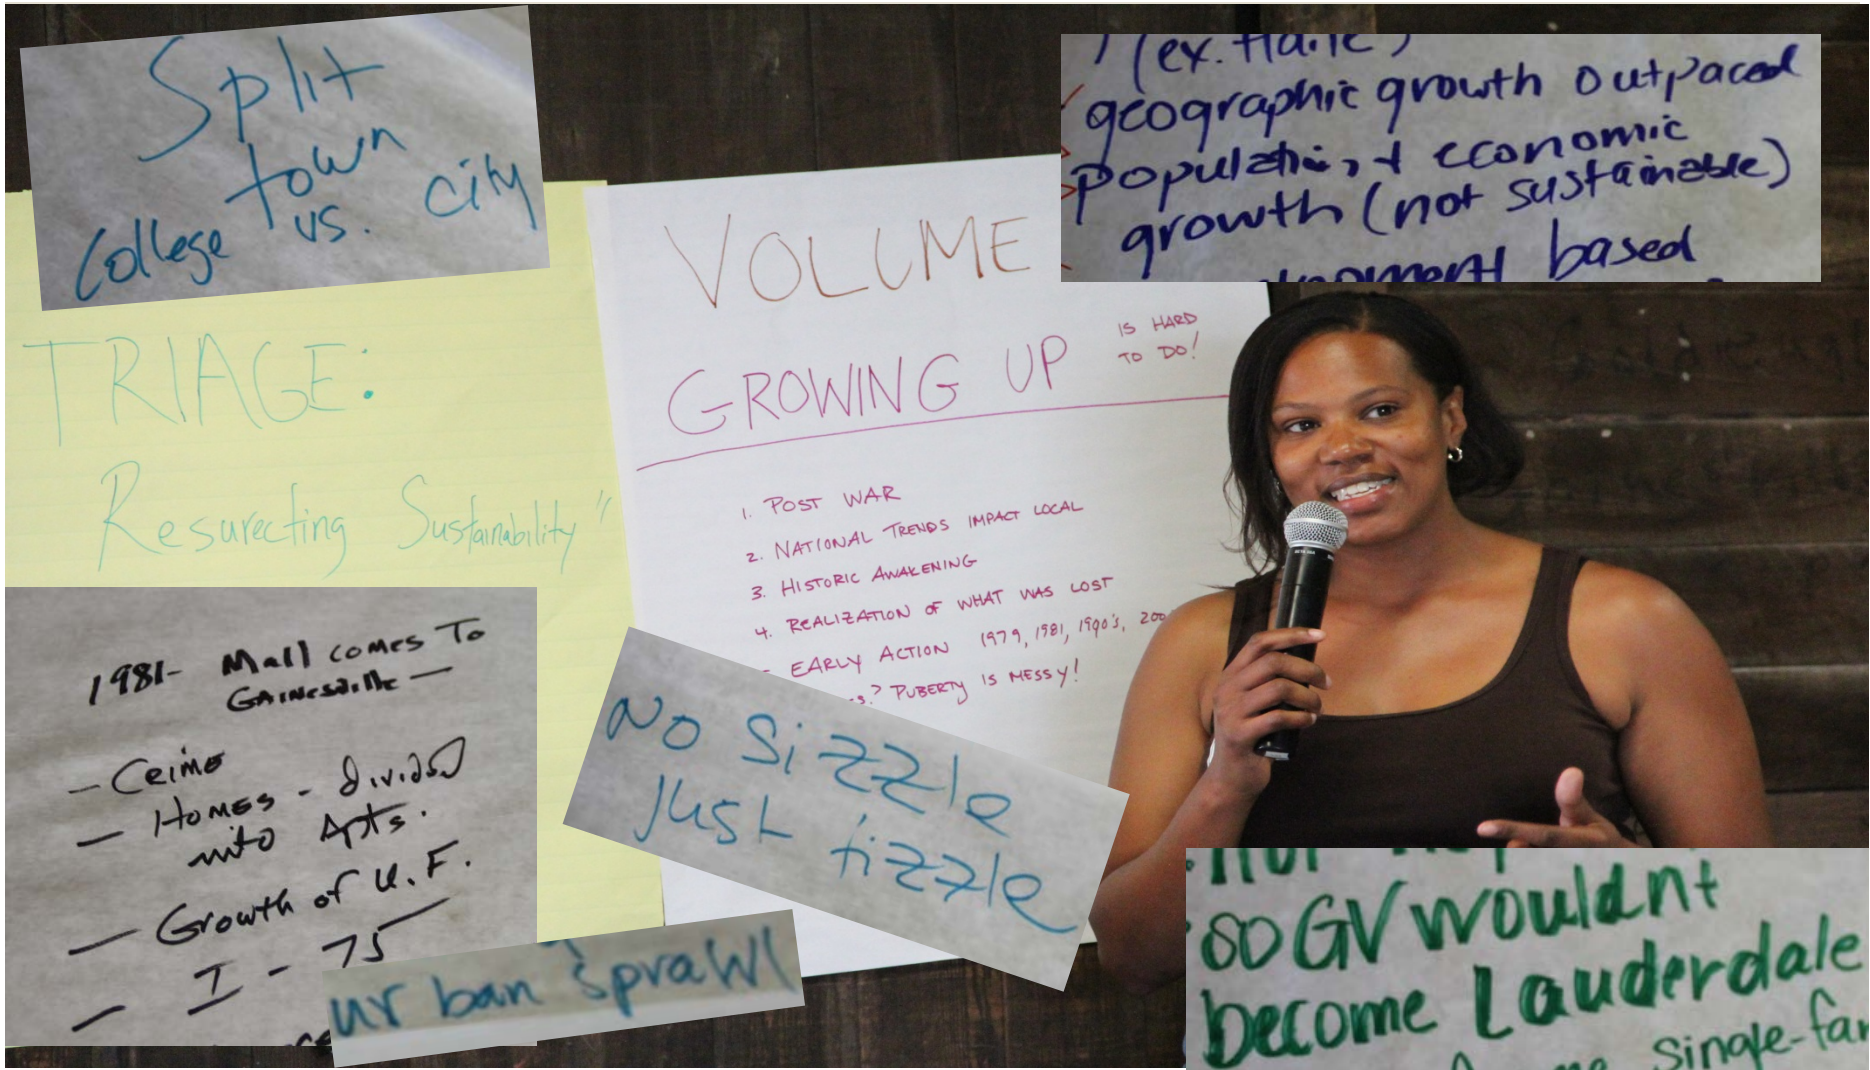 Split
town
College vs. city
(ex. Haile)
geographic growth outpaced
population, + economic
growth (not sustainable)
based
TRIAGE:
Resurecting Sustainability"
VOLUME
GROWING UP IS HARD
TO DO!
1. POST WAR
2. NATIONAL TRENDS IMPACT LOCAL
3. HISTORIC AWAKENING
4. REALIZATION OF WHAT WAS LOST
EARLY ACTION 1979, 1981, 1990's, 200
? PUBERTY IS MESSY!
1981- Mall comes To
GAINESville —
- Crime
- Homes - divided
into Apts.
- Growth of U.F.
- I-75
urban sprawl
No Sizzle
just fizzle
so GV wouldnt
become Lauderdale
single-fam